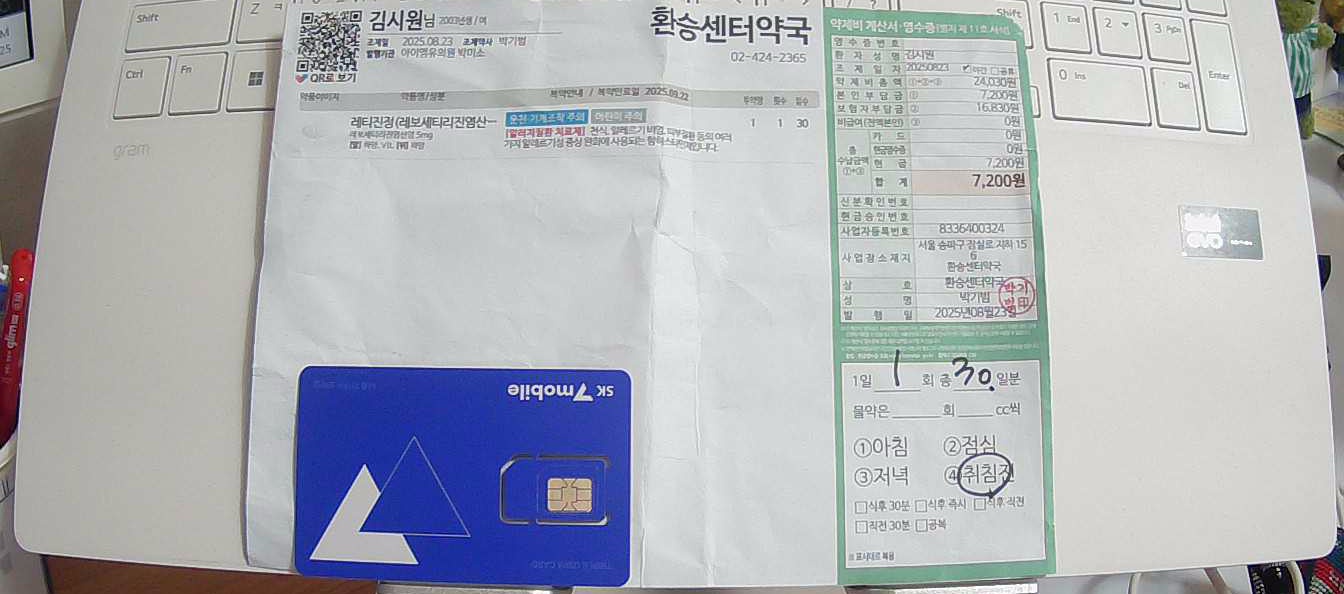 Shift
Z ㅋ
Ctrl
Fn
gram
M
25
김시원님 2003년생 / 여
조제일 2025.08.23 조제약사 박기범
발행기관 아이엠유의원 박미소
QR로 보기
환승센터약국
02-424-2365
약품이미지 약품명/성분 복약안내 / 복약완료일 2025.09.22 투약량 횟수 일수
레티진정 (레보세티리진염산…
레보세티리진염산염 5mg
운전·기계조작 주의 어린이 주의
[알러지질환 치료제] 천식, 알레르기 비염, 피부질환 등의 여러
가지 알레르기성 증상 완화에 사용되는 항히스타민제입니다.
1 1 30
약제비 계산서·영수증
영수증번호
환자성명 김시원
조제일자 20250823 야간 공휴
약제비총액 ①+②+③ 24,030원
본인부담금 ① 7,200원
보험자부담금 ② 16,830원
비급여(전액본인) ③ 0원
카드 0원
현금영수증 0원
총수납금액 ①+③ 현금 7,200원
합계 7,200원
신분확인번호
현금승인번호
사업자등록번호 8336400324
사업장소재지 서울 송파구 잠실로 지하 15
6
환승센터약국
상호 환승센터약국
성명 박기범
박기범印
발행일 2025년08월23일
1일 1 회 총 30 일분
물약은 회 cc씩
①아침 ②점심
③저녁 ④취침전
식후 30분 식후 즉시 식후 직전
직전 30분 공복
※ 표시대로 복용
SK 7mobile
Shift
1 End
2
3 PgDn
0 Ins
Del
Enter
evo